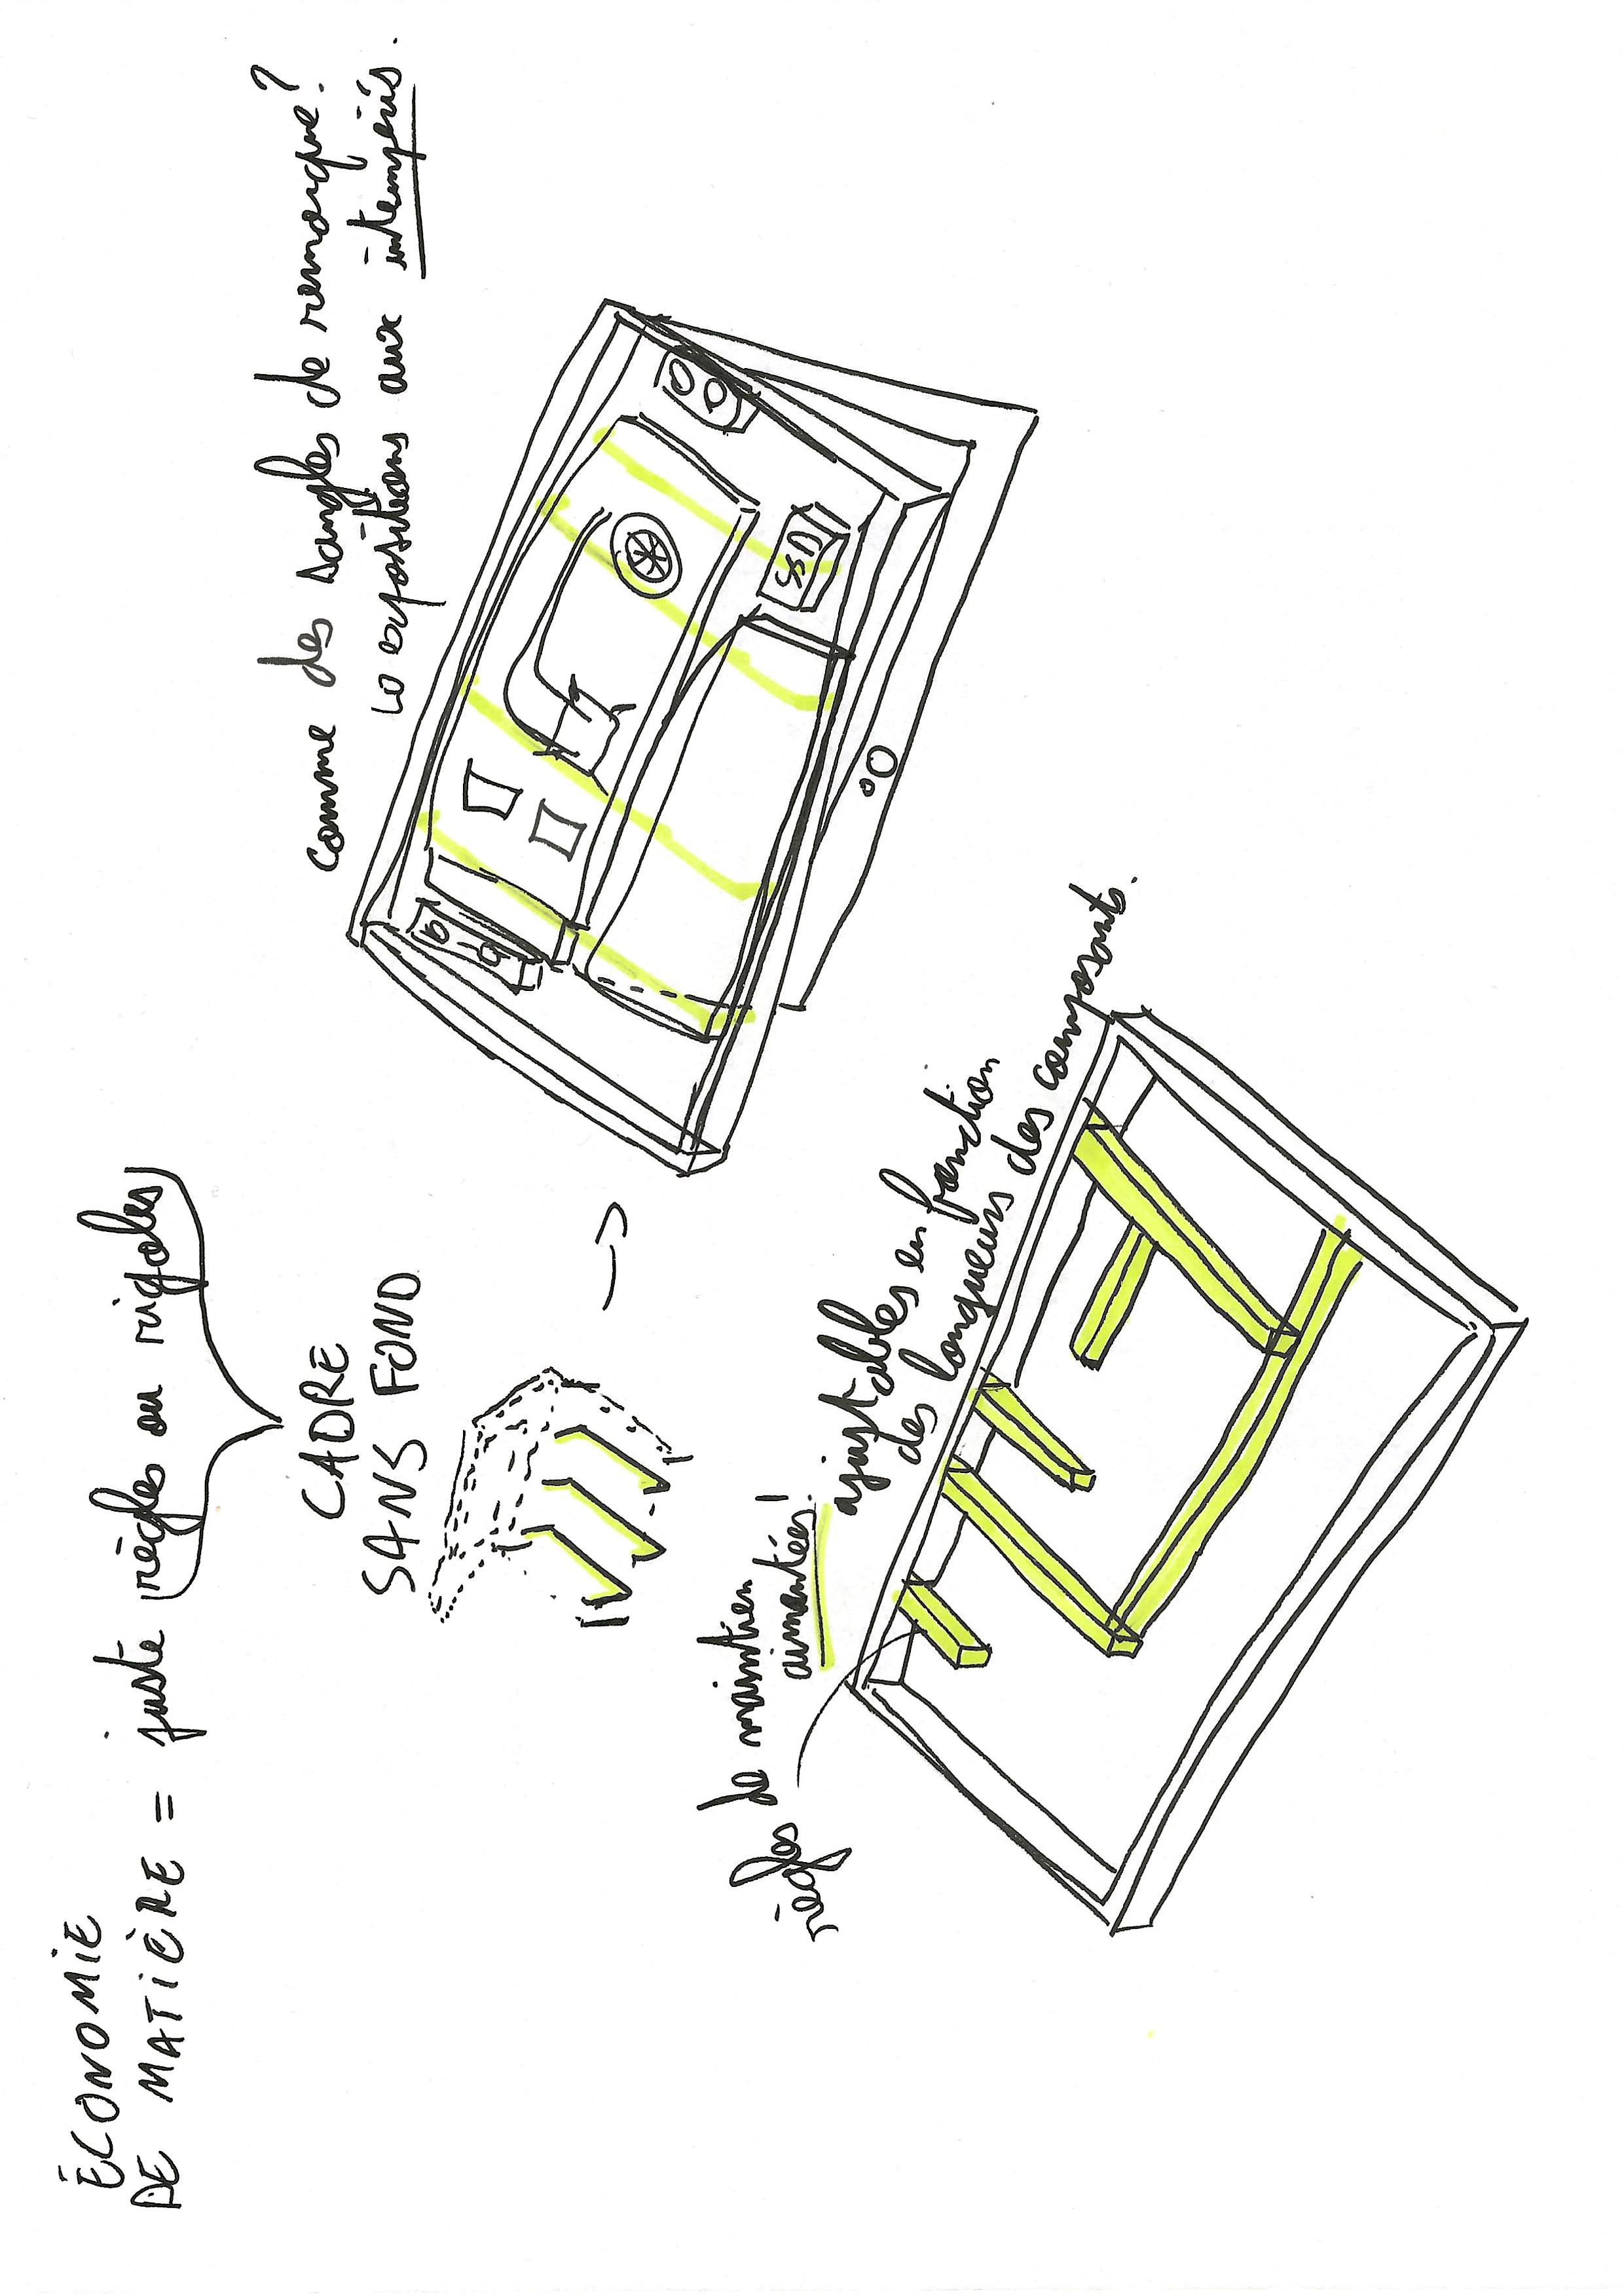 ÉCONOMIE
DE MATIÈRE = juste règles ou rigoles
CADRE
SANS FOND
comme des sangles de remorque?
↳ expositions aux intempéris.
règles de maintien
aimantées!
ajustables en fonction
des longueurs des composants.
SSD